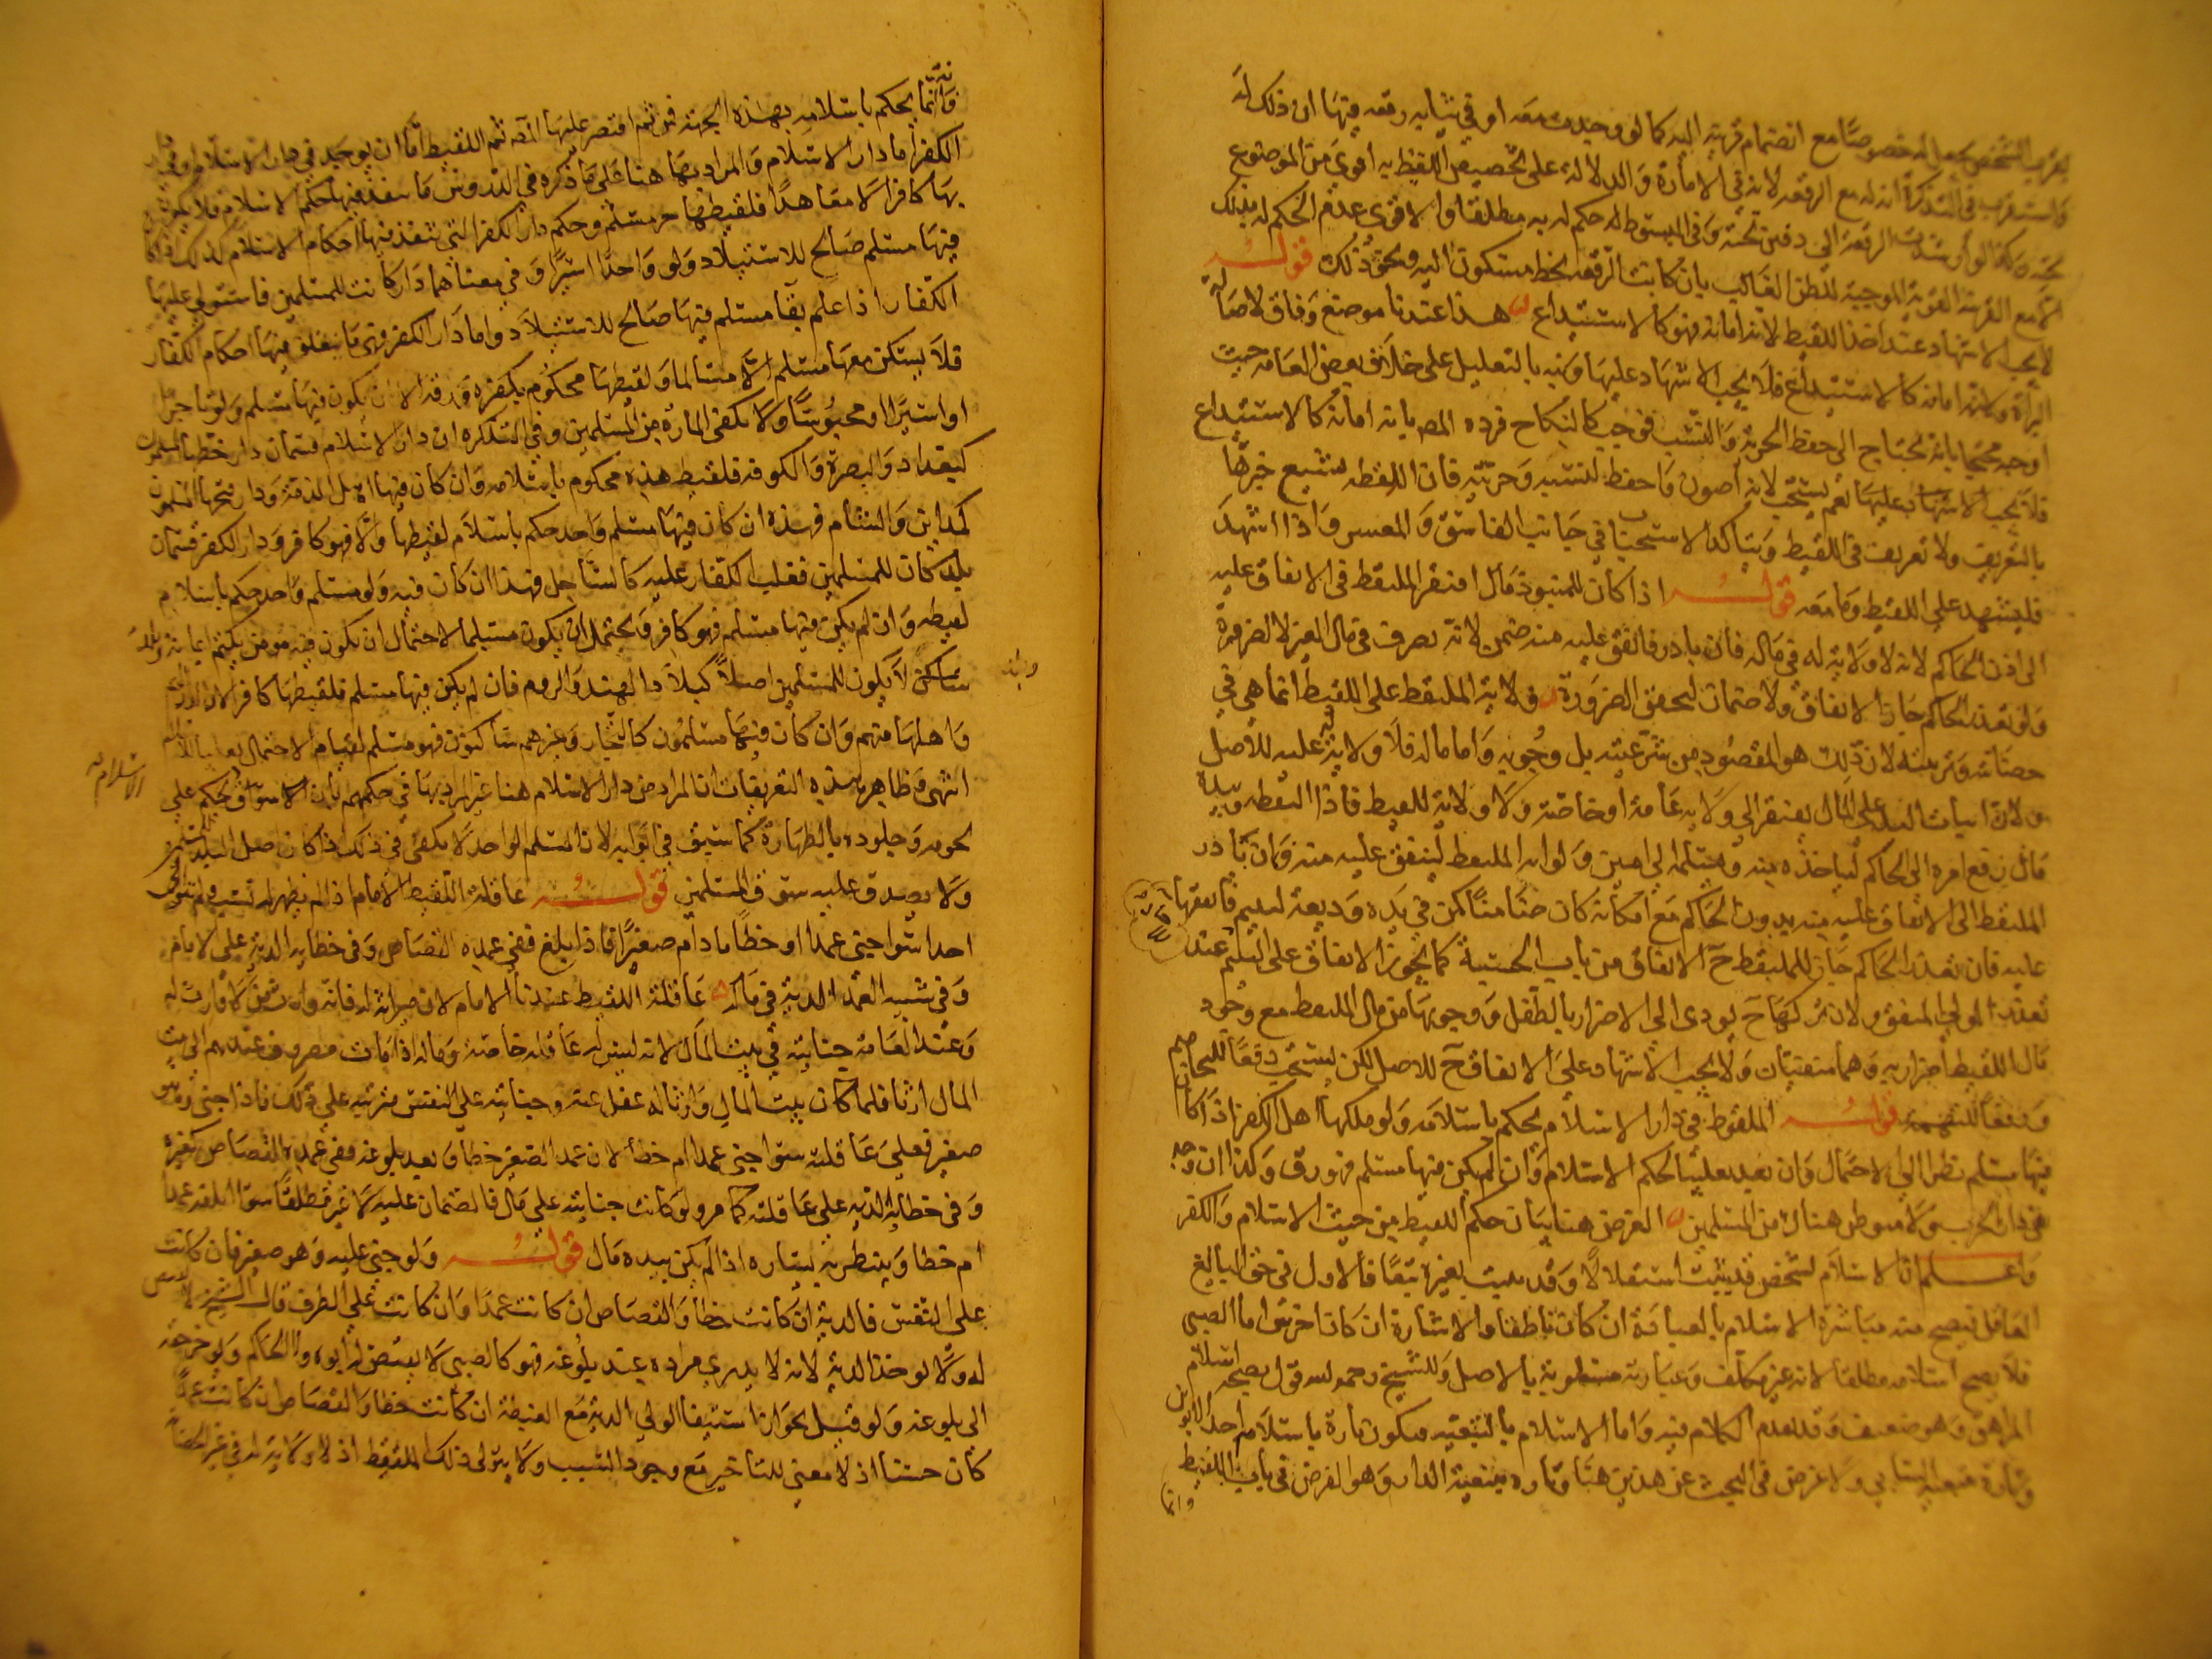 بقرب الشخص يجعل له خصوصا مع انضمام قرينة اليه كما لو وجدت معه او في ثيابه رقعه فيها ان ذلك له
واستقرب في التذكرة انه له مع الرقعه لانه في الامارة والدلالة على تخصيص اللقيط به اقوى من الموضوع
تحته وكذا لو ارشدت الرقعة الى دفين تحته وفي المبسوط له حكم له به مطلقا والاقوى عدم الحكم له بذلك
الا مع القرينة القوية الموجبة للظن الغالب بان كانت الرقعه بخط مسكون اليه ونحو ذلك قوله
لا يجب الاشهاد عند اخذ اللقيط لانه امانه فهو كالاستيداع هذا عندنا موضع وفاق لاصالة
البراة ولانه امانه كالاستيداع فلا يجب الاشهاد عليها ونبه بالتعليل على خلاف بعض العامه حيث
اوجبه محتجا بانه يحتاج الى حفظ الحرية والنسب فوجب كالنكاح فرده المص بانه امانه كالاستيداع
فلا يجب الاشهاد عليها نعم يستحب لانه اصون واحفظ لنسبه وحريته فان اللقطه يشيع خبرها
بالتعريف ولا تعريف في اللقيط ويتاكد الاستحباب في جانب الفاسق والمعسر واذا اشهد
فليشهد على اللقيط وما معه قوله اذا كان للمنبوذ مال افتقر الملتقط في الانفاق عليه
الى اذن الحاكم لانه لا ولاية له في ماله فان بادر فانفق عليه منه ضمن لانه تصرف في مال الغير لا لضرورة
ولو تعذر الحاكم جاز الانفاق ولا ضمان لتحقق الضرورة ولاية الملتقط على اللقيط انما هي في
حضانته وتربيته لان ذلك هو المقصود من شرعيته بل وجوبه واما ماله فلا ولاية له عليه للاصل
ولان اثبات اليد على المال يفتقر الى ولاية عامة او خاصة ولا ولاية للقيط فاذا التقطه وبيده
مال رفع امره الى الحاكم لياخذه منه ويسلمه الى امين ولو انه الملتقط لينفق عليه منه فان بادر
الملتقط الى الانفاق عليه منه بدون الحاكم مع امكانه كان ضامنا كمن في يده وديعة ليتيم فانفقها
عليه فان تعذر الحاكم جاز للملتقط ح الانفاق من باب الحسبة كما يجوز الانفاق على اليتيم عند
تعذر الولي المنفق ولان تركها ح يودي الى الاضرار بالطفل ووجوبها من مال الملتقط مع وجود
مال اللقيط اضرار به وهما منفيان ولا يجب الاشهاد على الانفاق ح للاصل لكن يستحب دفعا للتخاصم
ودفعا للتهمه قوله الملقوط في دار الاسلام يحكم باسلامه ولو ملكها اهل الكفر اذا كان
فيها مسلم نظرا الى الاحتمال وان بعد تغليبا لحكم الاسلام وان لم يكن فيها مسلم فهو رق وكذا ان وجد
في دار الحرب ولا متوطن هناك من المسلمين الغرض هنا بيان حكم اللقيط من حيث الاسلام والكفر
واعلم ان الاسلام لشخص قد يثبت استقلالا وقد يثبت لغيره تبعا فالاول في حق البالغ
العاقل فيصح منه مباشرة الاسلام بالعبارة ان كان ناطقا والاشارة ان كان اخرس اما الصبي
فلا يصح اسلامه مطلقا لانه غير مكلف وعبارته مسلوبة بالاصل وللشيخ رحمه الله قول بصحة اسلام
المراهق وهو ضعيف وقد تقدم الكلام فيه واما الاسلام بالتبعيه فيكون تارة باسلام احد الابوين
وتارة بتبعية السابي ولا غرض في البحث عن هذين هنا وتاره بتبعية الدار وهو الغرض في باب اللقيط
وانما
وانما يحكم باسلامه بهذه الجهة فمن ثم اقتصر عليها المص ثم اللقيط اما ان يوجد في دار الاسلام او في دار
الكفر اما دار الاسلام والمراد بها هنا على ما ذكره في الدروس ما ينفذ فيها حكم الاسلام فلا يكون
بها كافر الا معاهدا فلقيطها حر مسلم وحكم دار الكفر التي تنفذ فيها احكام الاسلام كذلك اذا كان
فيها مسلم صالح للاستيلاد ولو واحدا اسيرا وفي معناهما دار كانت للمسلمين فاستولى عليها
الكفار اذا علم بقا مسلم فيها صالح للاستيلاد واما دار الكفر فهي ما ينفذ فيها احكام الكفار
فلا يسكن معها مسلم الا مسالما ولقيطها محكوم بكفره ورقه الا ان يكون فيها مسلم ولو تاجرا
او اسيرا او محبوسا ولا يكفي المارة من المسلمين وفي التذكره ان دار الاسلام قسمان دار خطها المسلمون
كبغداد والبصرة والكوفه فلقيط هذه محكوم باسلامه وان كان فيها اهل الذمة ودار فتحها المسلمون
كمداين والشام فهذه ان كان فيها مسلم واحد حكم باسلام لقيطها والا فهو كافر ودار الكفر قسمان
بلد كان للمسلمين فغلب الكفار عليه كالساحل فهذا ان كان فيه ولو مسلم واحد حكم باسلام
لقيطه وان لم يكن فيها مسلم فهو كافر ويحتمل ان يكون مسلما لاحتمال ان يكون فيه مومن يكتم ايمانه وبلد
لا يكون للمسلمين اصلا كبلاد الهند والروم فان لم يكن فيها مسلم فلقيطها كافر لان الدار لهم
واهلها منهم وان كان فيها مسلمون كالتجار وغيرهم ساكنون فهو مسلم لقيام الاحتمال تغليبا للاسلام
انتهى وظاهر هذه التعريفات ان المراد من دار الاسلام هنا غير المراد بها في حكمهم بان الاسواق يحكم على
لحومه وجلوده بالطهارة كما سبق في بابه لان المسلم الواحد لا يكفي في ذلك اذا كان اصل البلد للكفر
ولا يصدق عليه سوق المسلمين قوله عاقلة اللقيط الامام اذا لم يظهر له نسب ولم يتوال
احدا سوا جنى عمدا او خطا ما دام صغيرا فاذا بلغ ففي عمده القصاص وفي خطايه الدية على الامام
وفي شبيه العمد الدية في ماله عاقلة اللقيط عندنا الامام لان ميراثه له فانه وارث من لا وارث له
وعند العامة جنايته في بيت المال لانه ليس له عاقله خاصة وماله اذا مات مصروف عندهم الى بيت
المال ارثا فلما كان بيت المال وارثا له عقل عنه وجنايته على النفس مترتبة على ذلك فاذا جنى وهو
صغير فعلى عاقلته سوا جنى عمدا ام خطا لان عمد الصغير خطا وبعد بلوغه ففي عمده القصاص كغيره
وفي خطائه الديه على عاقلته كما مر ولو كانت جنايته على مال فالضمان عليه لا غير مطلقا سوا اتلفه عمدا
ام خطا وينتظر به يساره اذا لم يكن بيده مال قوله ولو جنى عليه وهو صغير فان كانت
على النفس فالدية ان كانت خطا والقصاص ان كانت عمدا وان كانت على الطرف قال الشيخ لا يقتص
له ولا يوخذ الدية لانه لا يدري مراده عند بلوغه فهو كالصبي لا يقتص له ابوه ولا الحاكم ويوخر حقه
الى بلوغه ولو قيل بجواز استيفا الولي الدية مع الغبطة ان كانت خطا والقصاص ان كانت عمدا
كان حسنا اذ لا معنى للتاخير مع وجود السبب ولا يتولى ذلك الملتقط اذ لا ولاية له في غير الحضانة